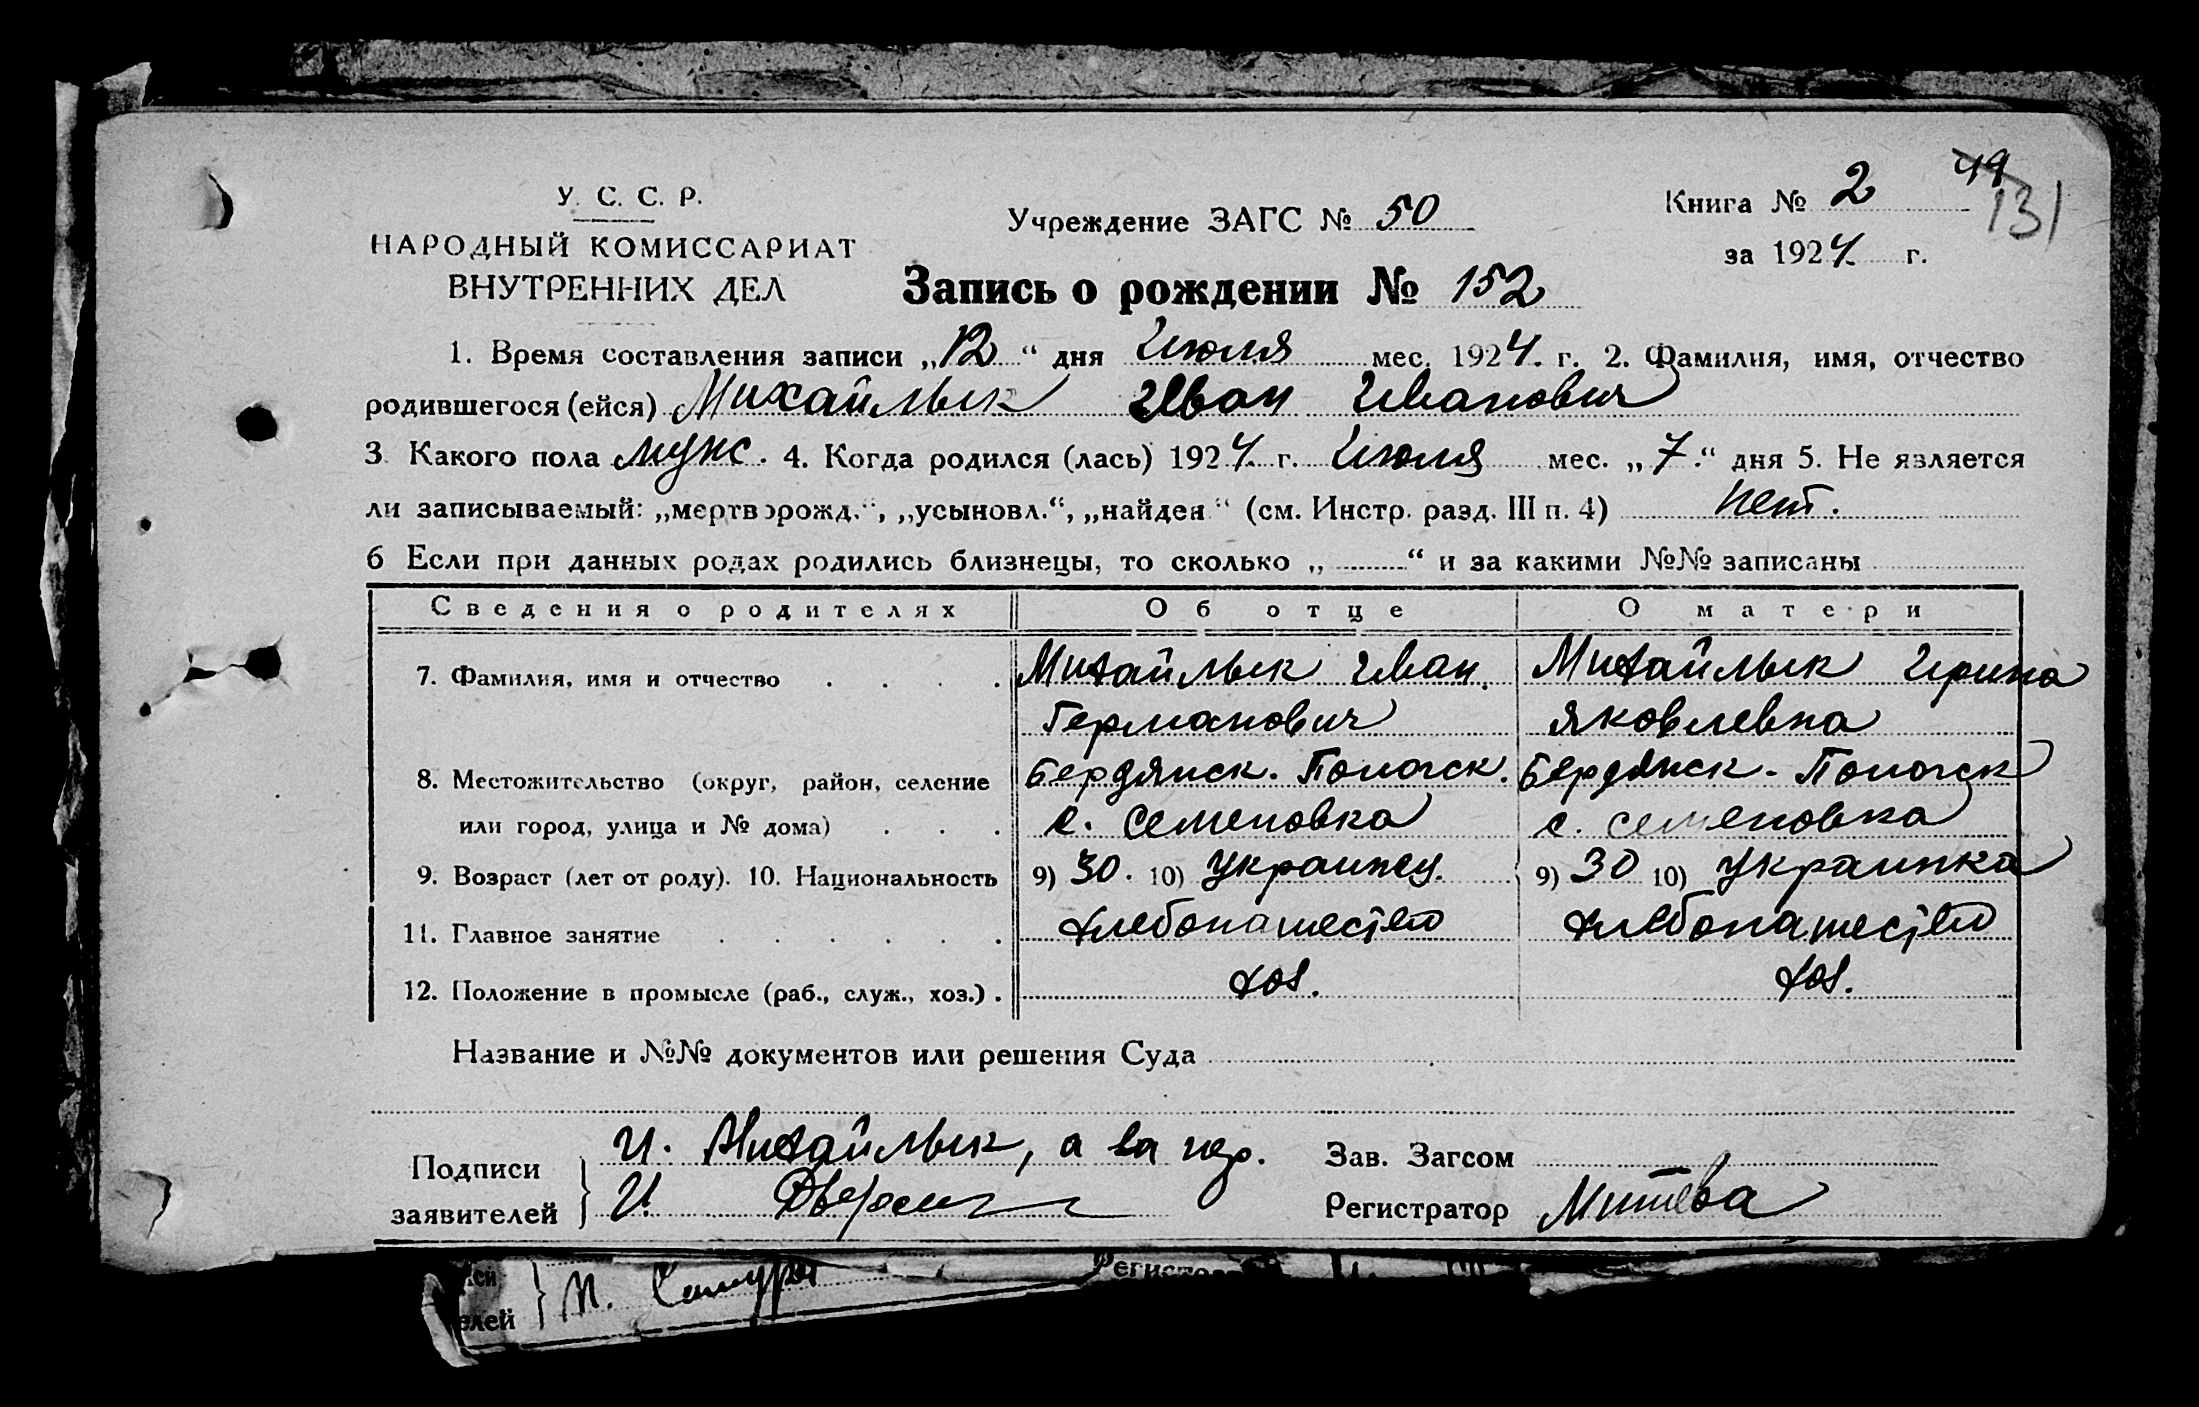 49
131
У. С. С. Р.
НАРОДНЫЙ КОМИССАРИАТ
ВНУТРЕННИХ ДЕЛ
Учреждение ЗАГС № 50
Книга № 2
за 1924 г.
Запись о рождении № 152
1. Время составления записи „12“ дня Июля мес. 1924. г. 2. Фамилия, имя, отчество
родившегося (ейся) Михайлык Иван Иванович
3 Какого пола муж. 4. Когда родился (лась) 1924. г. Июля мес. „7.“ дня 5. Не является
ли записываемый: „мертворожд.“, „усыновл.“, „найден“ (см. Инстр. разд. III п. 4) нет.
6 Если при данных родах родились близнецы, то сколько „ “ и за какими №№ записаны
Сведения о родителях Об отце О матери
7. Фамилия, имя и отчество Михайлык Иван. Михайлык Ирина
Германович Яковлевна
8. Местожительство (округ, район, селение Бердянск. Пологск. Бердянск. Пологск
или город, улица и № дома) с. Семеновка с. Семеновка
9. Возраст (лет от роду). 10. Национальность 9) 30. 10) Украинец. 9) 30 10) Украинка
11. Главное занятие хлебопашество хлебопашество
12. Положение в промысле (раб., служ., хоз.) . хоз. хоз.
Название и №№ документов или решения Суда
Подписи заявителей
И. Михайлык, а за нер.
И.
Зав. Загсом
Регистратор Митева
елей